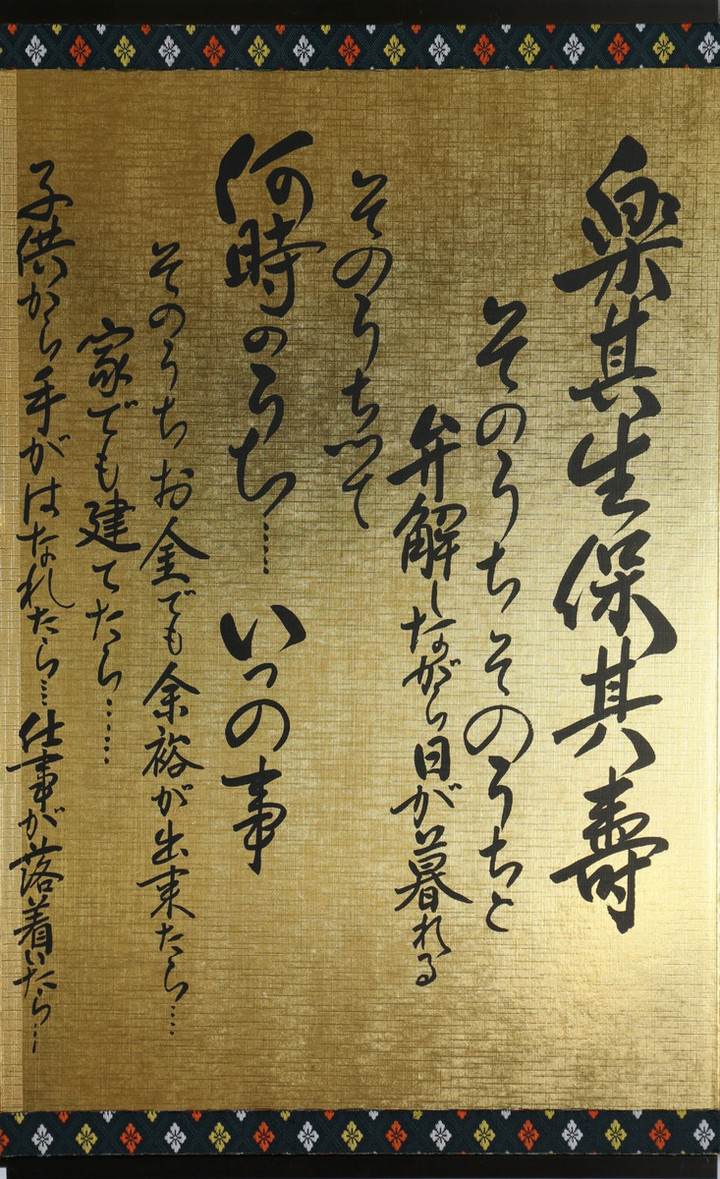 楽其生保其寿
そのうちそのうちと
弁解しながら日が暮れる
そのうちって
何時のうち……いつの事
そのうちお金でも余裕が出来たら……
家でも建てたら……
子供から手がはなれたら…仕事が落着いたら…